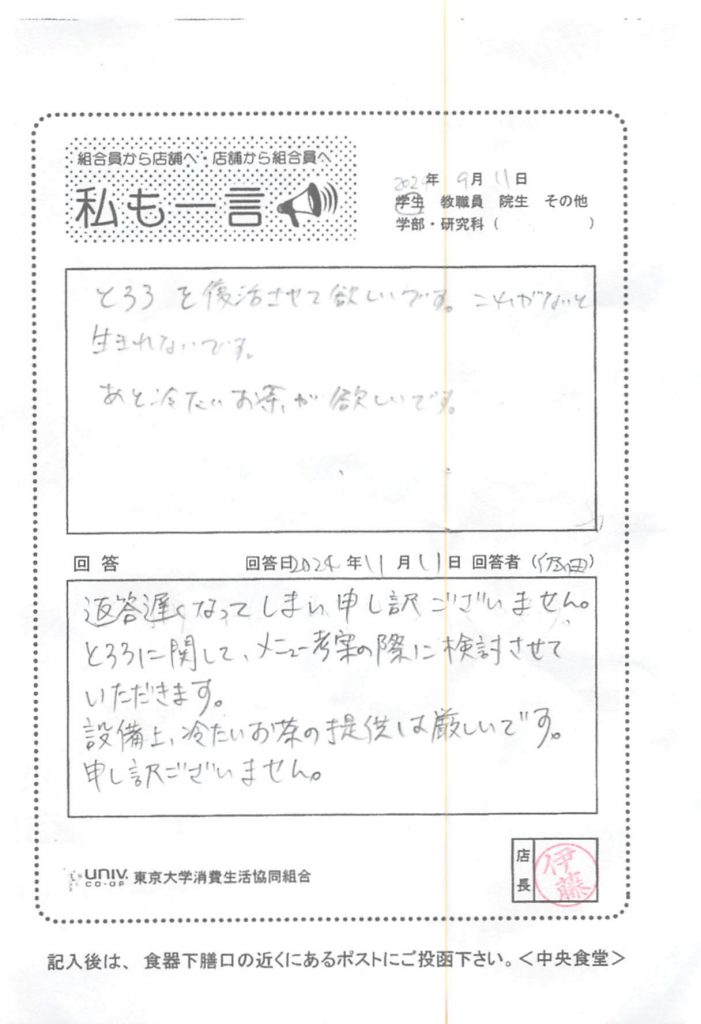 組合員から店舗へ・店舗から組合員へ
私も一言
2024年 9月 11日
学生 教職員 院生 その他
学部・研究科（ ）
とろろを復活させて欲しいです。これがないと
生きれないです。
あと冷たいお茶が欲しいです。
回答 回答日2024年11月11日 回答者（ ）
返答遅くなってしまい申し訳ございません。
とろろに関して、メニュー考案の際に検討させて
いただきます。
設備上、冷たいお茶の提供は厳しいです。
申し訳ございません。
UNIV.
CO-OP
東京大学消費生活協同組合
店長
伊藤
記入後は、食器下膳口の近くにあるポストにご投函下さい。＜中央食堂＞